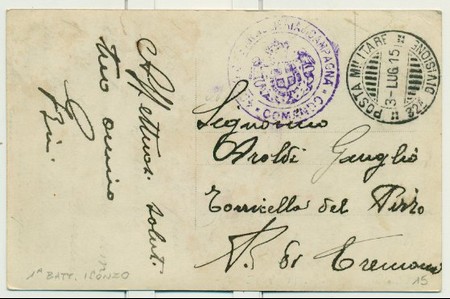 Affettuosi saluti
tuo amico
CAMPAGNA
COMANDO
POSTA MILITARE
13 - LUG. 15
22ª DIVISIONE
Signorino
Aroldi Ganglio
Torricella del Pizzo
P. di Cremona
1ª BATT. ISONZO
15